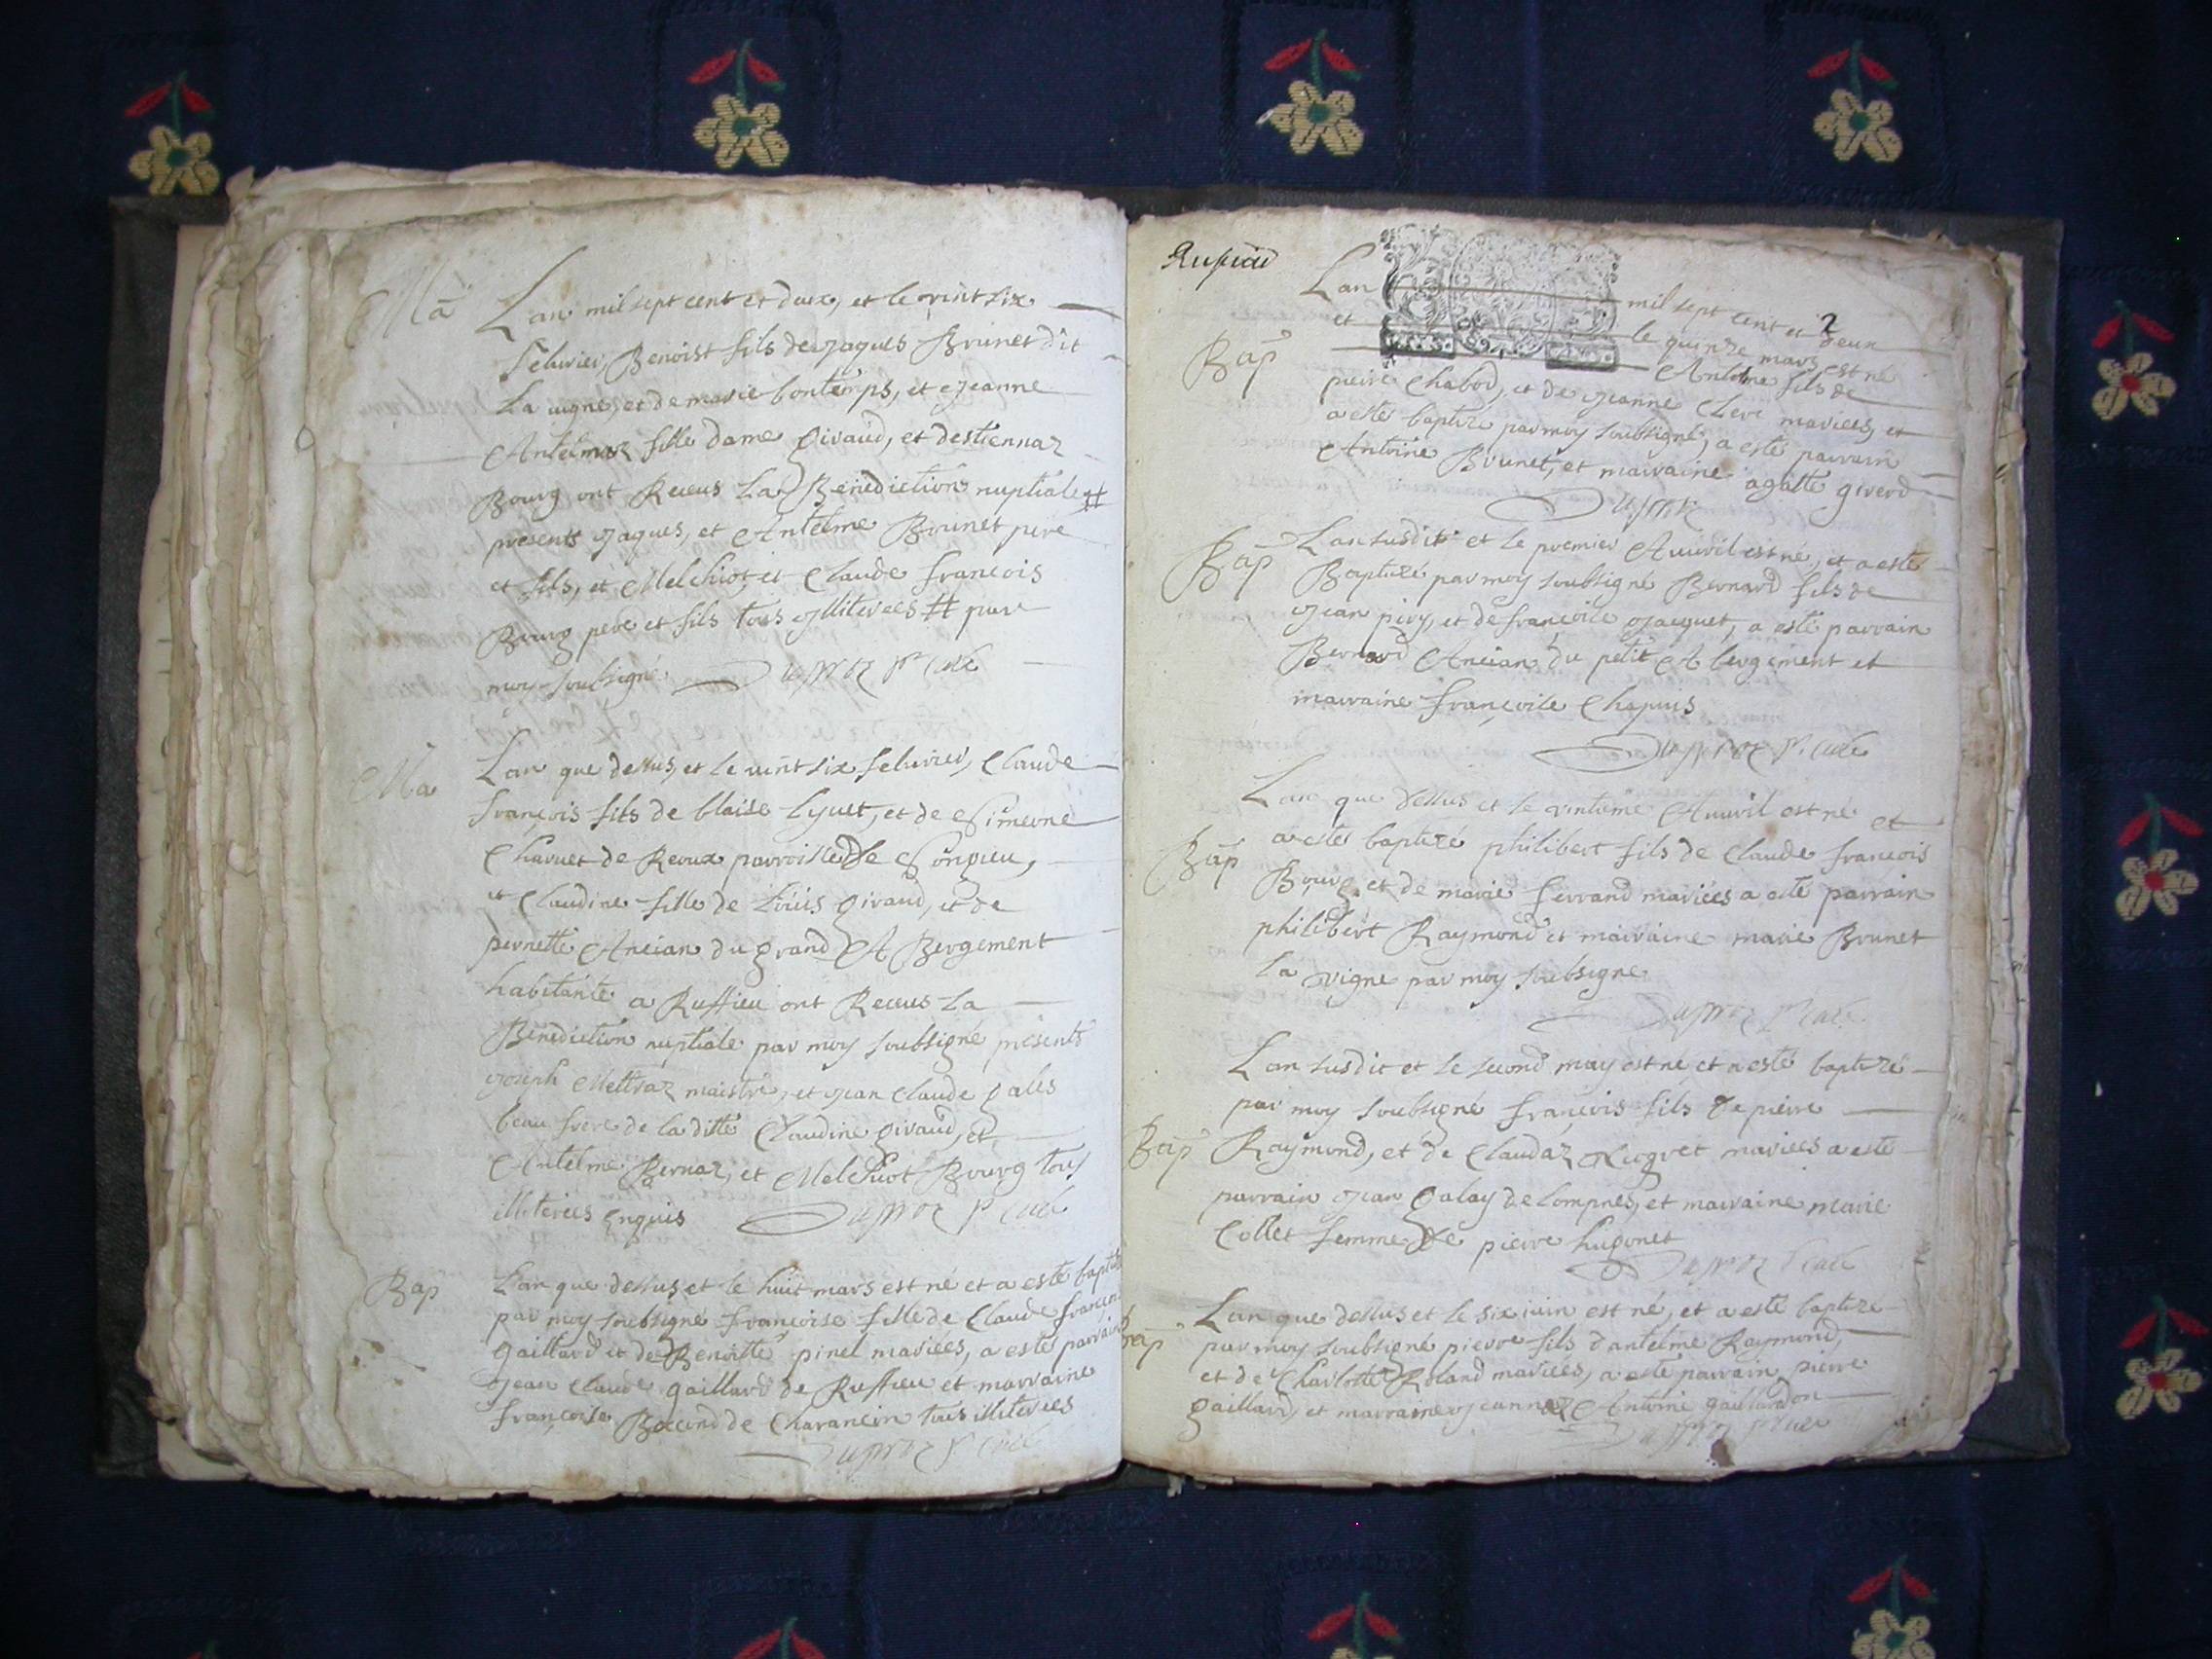 Ma
Lan mil sept cent et deux, et le vint six
feburier, Benoist fils de Jaques Brunet dit
La vigne, et de marie bontemps, et Jeanne
Antelmaz fille dame Givaud, et destiennaz
Bourg ont Receus La Benediction nuptiale #
presents Jaques, et Antelme Brunet pere
et fils, et Melchiot, et Claude françois
Bourg pere et fils tous Illiterees # par
moy soubsigné Dupraz p. curé
Ma
Lan que dessus, et le vint six feburier, Claude
françois fils de blaise Lyuet, et de
Charuet de parroisse de
et Claudine fille de Loüis Givaud, et de
pernette Ancian du grand A Bergement
habitante a Ruffieu ont Receus La
Benediction nuptiale par moy soubsigné presents
Joseph Mettraz maistre, et Jean Claude gales
beau frere de la ditte Claudine givaud, et
Antelme Bernaz, et Melchiot Bourg tous
illiterees enquis Dupraz p curé
Bap
Lan que dessus et le huit mars est né et a esté baptisé
par moy soubsigné françoise fille de Claude françois
gaillard et de Benoitte pinel mariées, a esté parrain
Jean Claude gaillard de Ruffieu et marraine
françoise de Charancin tous illiterees
Dupraz p curé
Rufieu
Lan mil sept cent et deux
2
et le quinze mars est né
Bap
Antoine fils de
pierre Chabod, et de Jeanne Clere mariees, et
a esté baptizé par moy soubsigné, a esté parrain
Antoine Brunet, et marraine agatte giverd
Dupraz
Bap
Lan susdit et le premier Auvril est né, et a esté
Baptizé par moy soubsigné Bernard fils de
Jean et de françoise Jacquet, a esté parrain
Bernard Ancian du petit A bergement et
marraine françoise Chapuis
Dupraz p. curé
Lan que dessus et le vintieme Auvril est né et
Bap
a esté baptizé philibert fils de Claude françois
Bourg, et de marie ferrand mariées a esté parrain
philibert Raymond et marraine marie Brunet
la vigne par moy soubsigné
Dupraz p curé
Lan susdit et le second may est né, et a esté baptizé
par moy soubsigné françois fils de pierre
Bap
Raymond, et de Claudaz mariees a esté
parrain Jean galay de Lompnes, et marraine marie
Collet femme de pierre hugonet
Dupraz p curé
Bap
Lan que dessus et le six juin est né, et a esté baptizé
par moy soubsigné pierre fils dantelme Raymond,
et de Charlotte Roland mariees, a esté parrain pierre
gaillard, et marraine Jeannaz Antoine gaillardon
Dupraz p curé